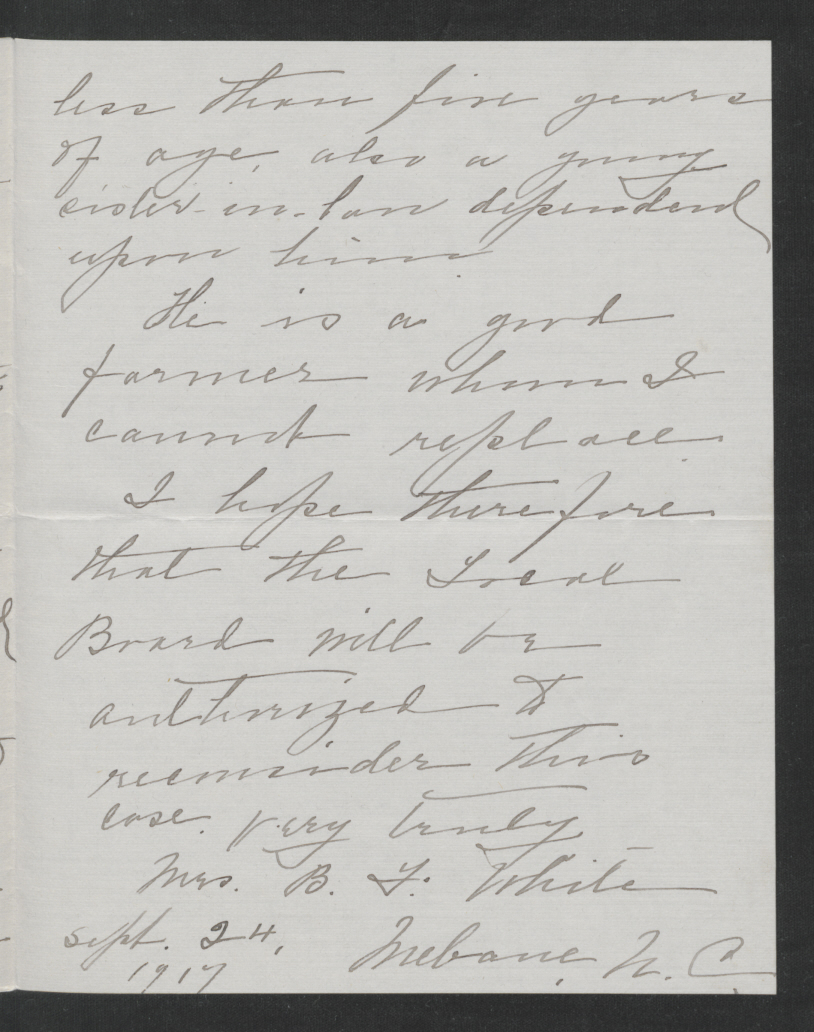 less than five years
of age, also a young
sister-in-law dependent
upon him.
He is a good
farmer whom I
cannot replace.
I hope therefore
that the Local
Board will be
authorized to
reconsider this
case. Very truly
Mrs. B. F. White
Sept. 24, Mebane, N. C.
1917